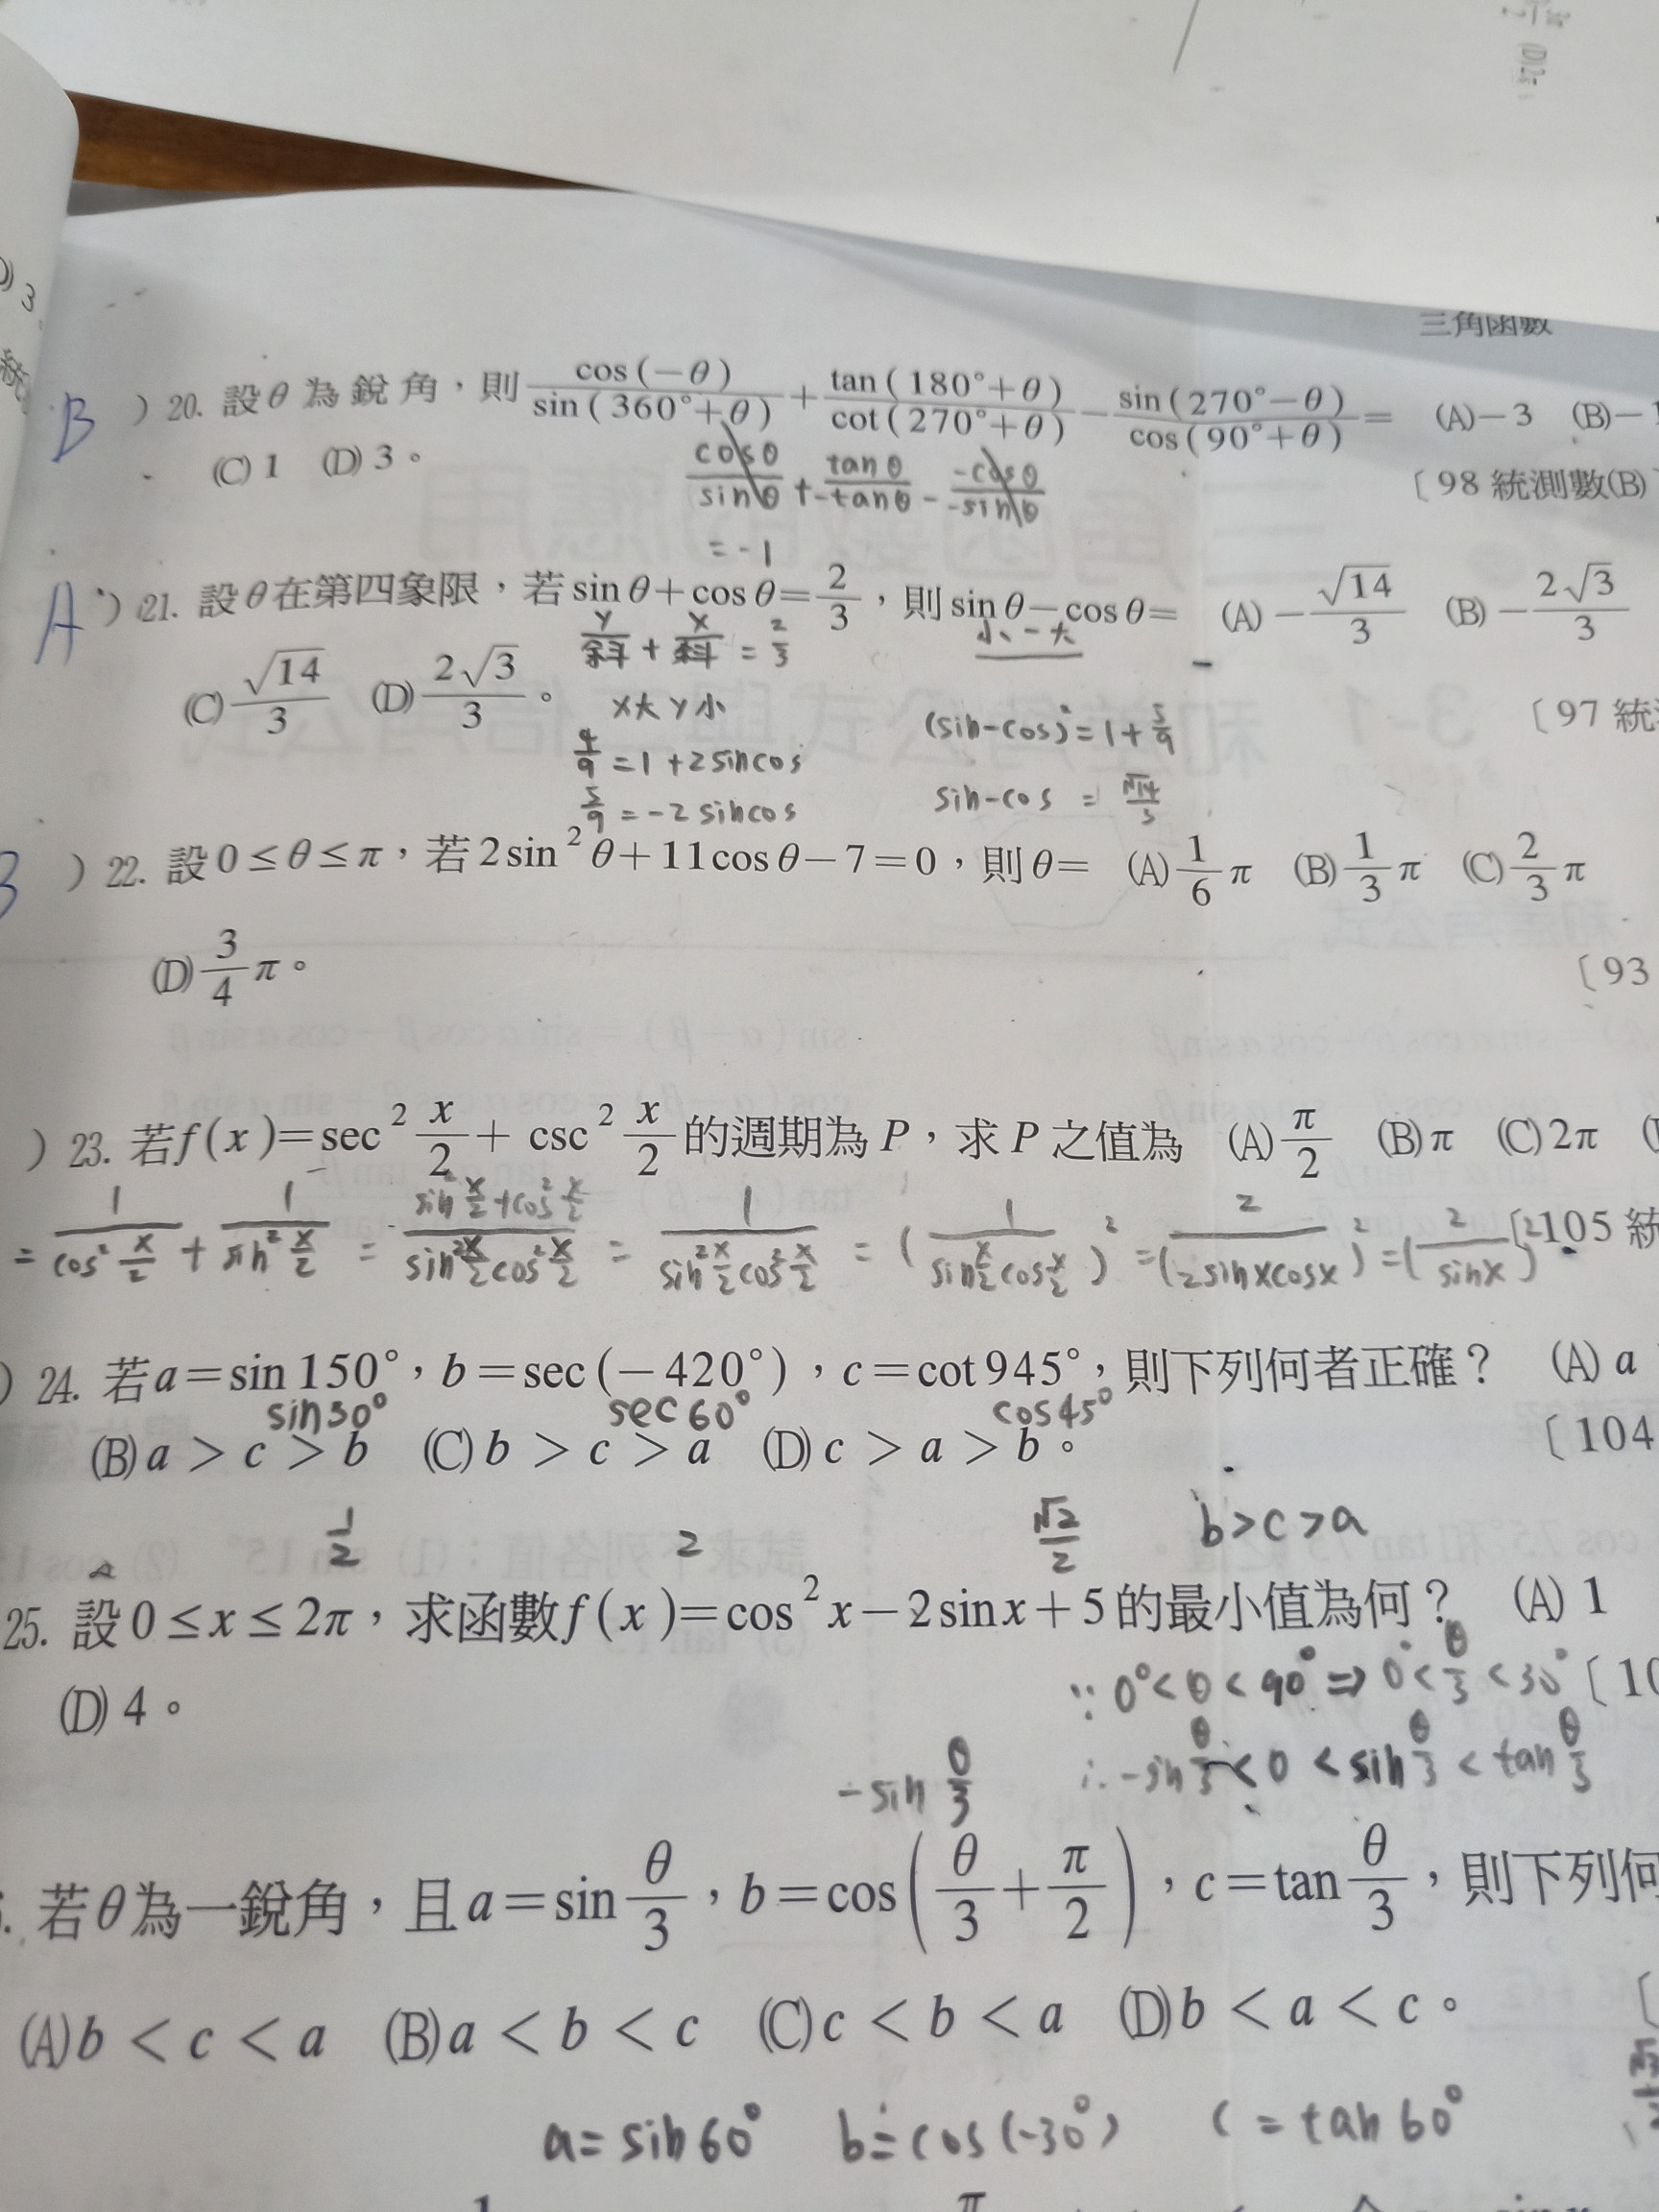 三角函數
B ) 20. 設θ為銳角，則 cos(−θ)/sin(360°+θ) + tan(180°+θ)/cot(270°+θ) − sin(270°−θ)/cos(90°+θ) = (A)−3 (B)−1
(C) 1 (D) 3。
〔98 統測數(B)
cosθ/sinθ + tanθ/−tanθ − −cosθ/−sinθ
= −1
A ) 21. 設θ在第四象限，若 sinθ+cosθ=2/3，則 sinθ−cosθ= (A)−√14/3 (B)−2√3/3
y/斜 + x/斜 = 2/3
小−大
(C)√14/3 (D)2√3/3。
〔97 統
x大y小
(sin−cos)²=1+5/9
4/9=1+2sincos
sin−cos = √14/3
5/9=−2sincos
) 22. 設0≤θ≤π，若2sin²θ+11cosθ−7=0，則θ= (A)1/6 π (B)1/3 π (C)2/3 π
(D)3/4 π。
〔93
) 23. 若f(x)=sec² x/2 + csc² x/2 的週期為P，求P之值為 (A)π/2 (B)π (C)2π
= 1/cos² x/2 + 1/sin² x/2 = sin² x/2+cos² x/2 / sin² x/2 cos² x/2 = 1/sin² x/2 cos² x/2 = (1/sin x/2 cos x/2)² = (2/2sinxcosx)² = (2/sinx)²
〔105 統
) 24. 若a=sin150°，b=sec(−420°)，c=cot945°，則下列何者正確？ (A) a
sin30° sec60° cos45°
(B) a > c > b (C) b > c > a (D) c > a > b。
〔104
1/2 2 √2/2 b>c>a
25. 設0≤x≤2π，求函數f(x)=cos²x−2sinx+5的最小值為何？ (A) 1
∵ 0°<θ<90° ⇒ 0°<θ/3<30°
(D) 4。
〔10
−sin θ/3
∴ −sin θ/3 < 0 < sin θ/3 < tan θ/3
若θ為一銳角，且a=sin θ/3，b=cos(θ/3+π/2)，c=tan θ/3，則下列何
(A) b < c < a (B) a < b < c (C) c < b < a (D) b < a < c。
a=sin60° b=cos(−30°) c=tan60°